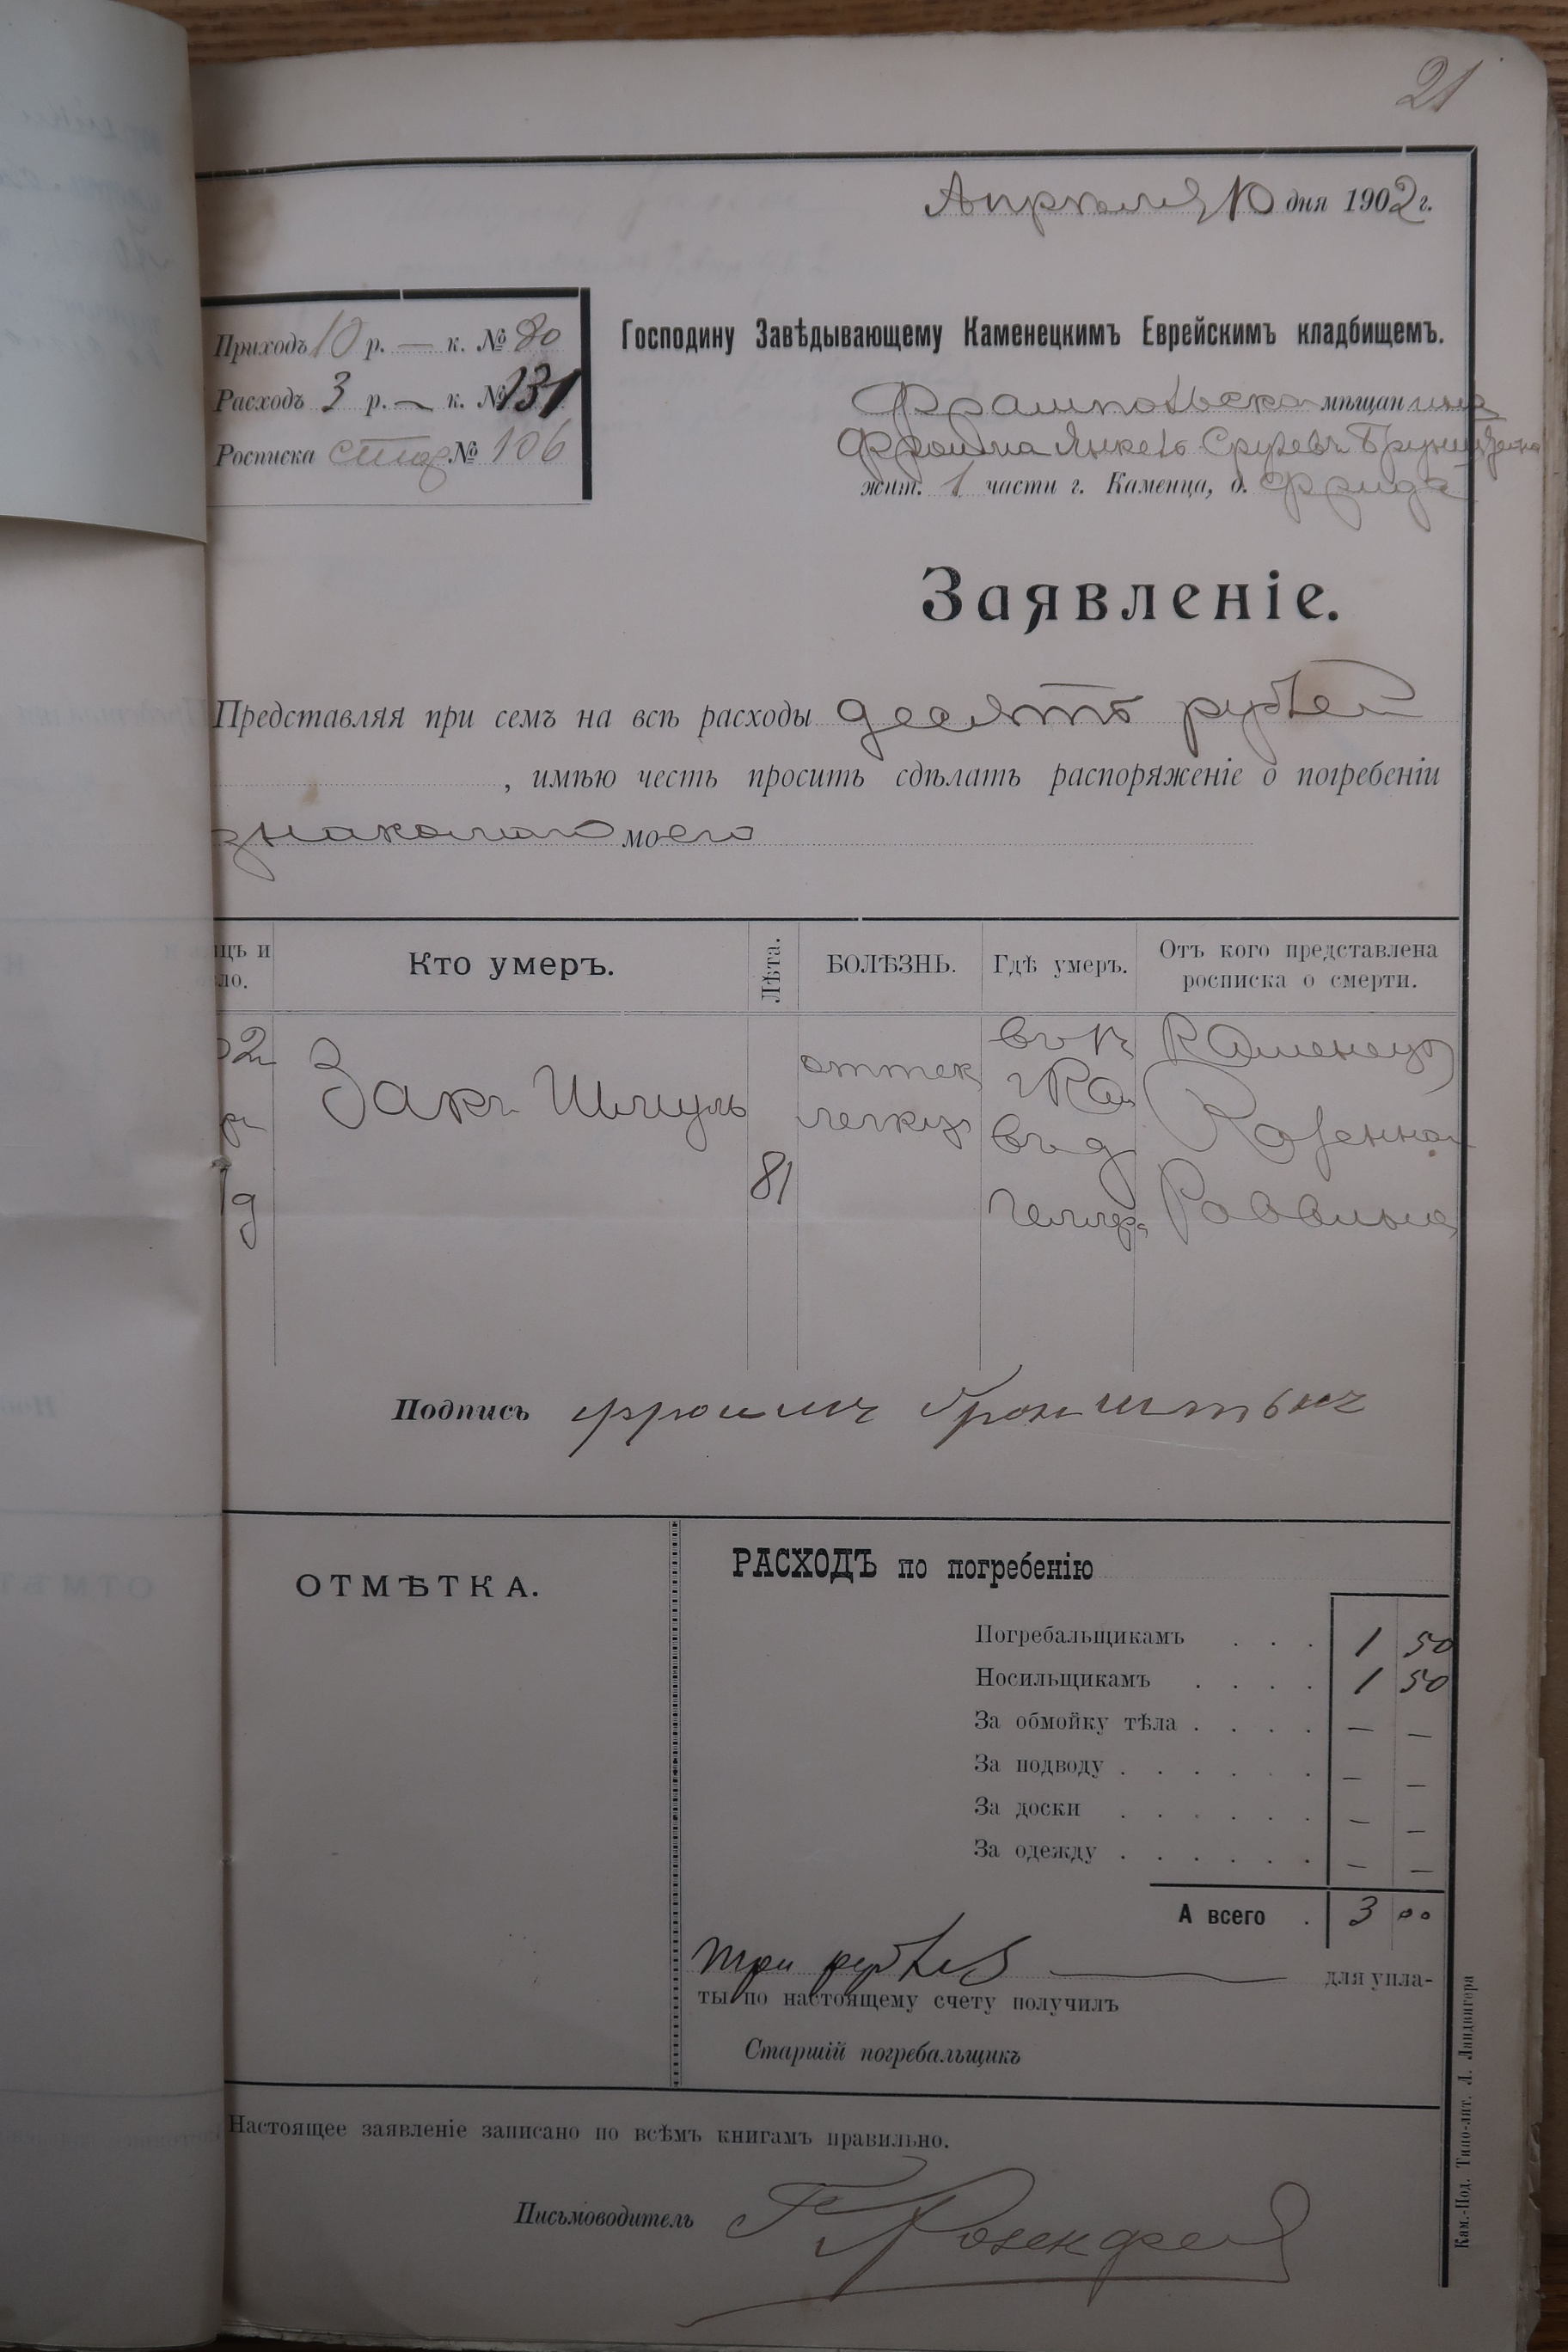 21
Апрѣля 10 дня 1902 г.
Приходъ 10 р. — к. № 80
Расходъ 3 р. — к. № 131
Росписка № 106
Господину Завѣдывающему Каменецкимъ Еврейскимъ кладбищемъ.
мѣщанина
Фроима Янкель Срулевъ
жит. 1 части г. Каменца, д. Фрида
Заявленіе.
Представляя при семъ на всѣ расходы десять рублей
, имѣю честь просить сдѣлать распоряженіе о погребеніи
знакомаго моего
щъ и
ло.
Кто умеръ.
Лѣта.
БОЛѢЗНЬ.
Гдѣ умеръ.
Отъ кого представлена
росписка о смерти.
02
Закъ Шмуль
81
отек
легких
въ
въ д
Каменецк
Казенного
Раввина
Подпись Фроимъ Бронштейнъ
ОТМѢТКА.
РАСХОДЪ по погребенію
Погребальщикамъ . . . 1 50
Носильщикамъ . . . . 1 50
За обмойку тѣла . . . . — —
За подводу . . . . . . — —
За доски . . . . . . — —
За одежду . . . . . . — —
А всего . 3 00
три рубля — для упла-
ты по настоящему счету получилъ
Старшій погребальщикъ
Настоящее заявленіе записано по всѣмъ книгамъ правильно.
Письмоводитель Г. Розенфельд
Кам.-Под. Типо-лит. Л. Ландвигера